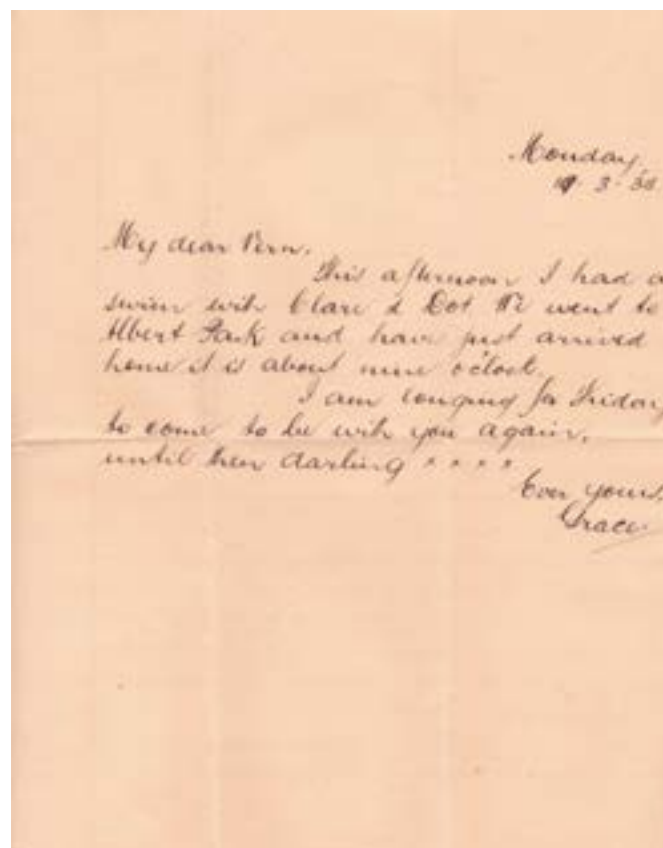 Monday,
My dear Vern.
This afternoon I had a
swim with Clare & Dot We went to
Albert Park and have just arrived
home it is about nine o'clock.
I am longing for Friday
to come to be with you again.
until then darling x x x x
Ever yours.
Grace.